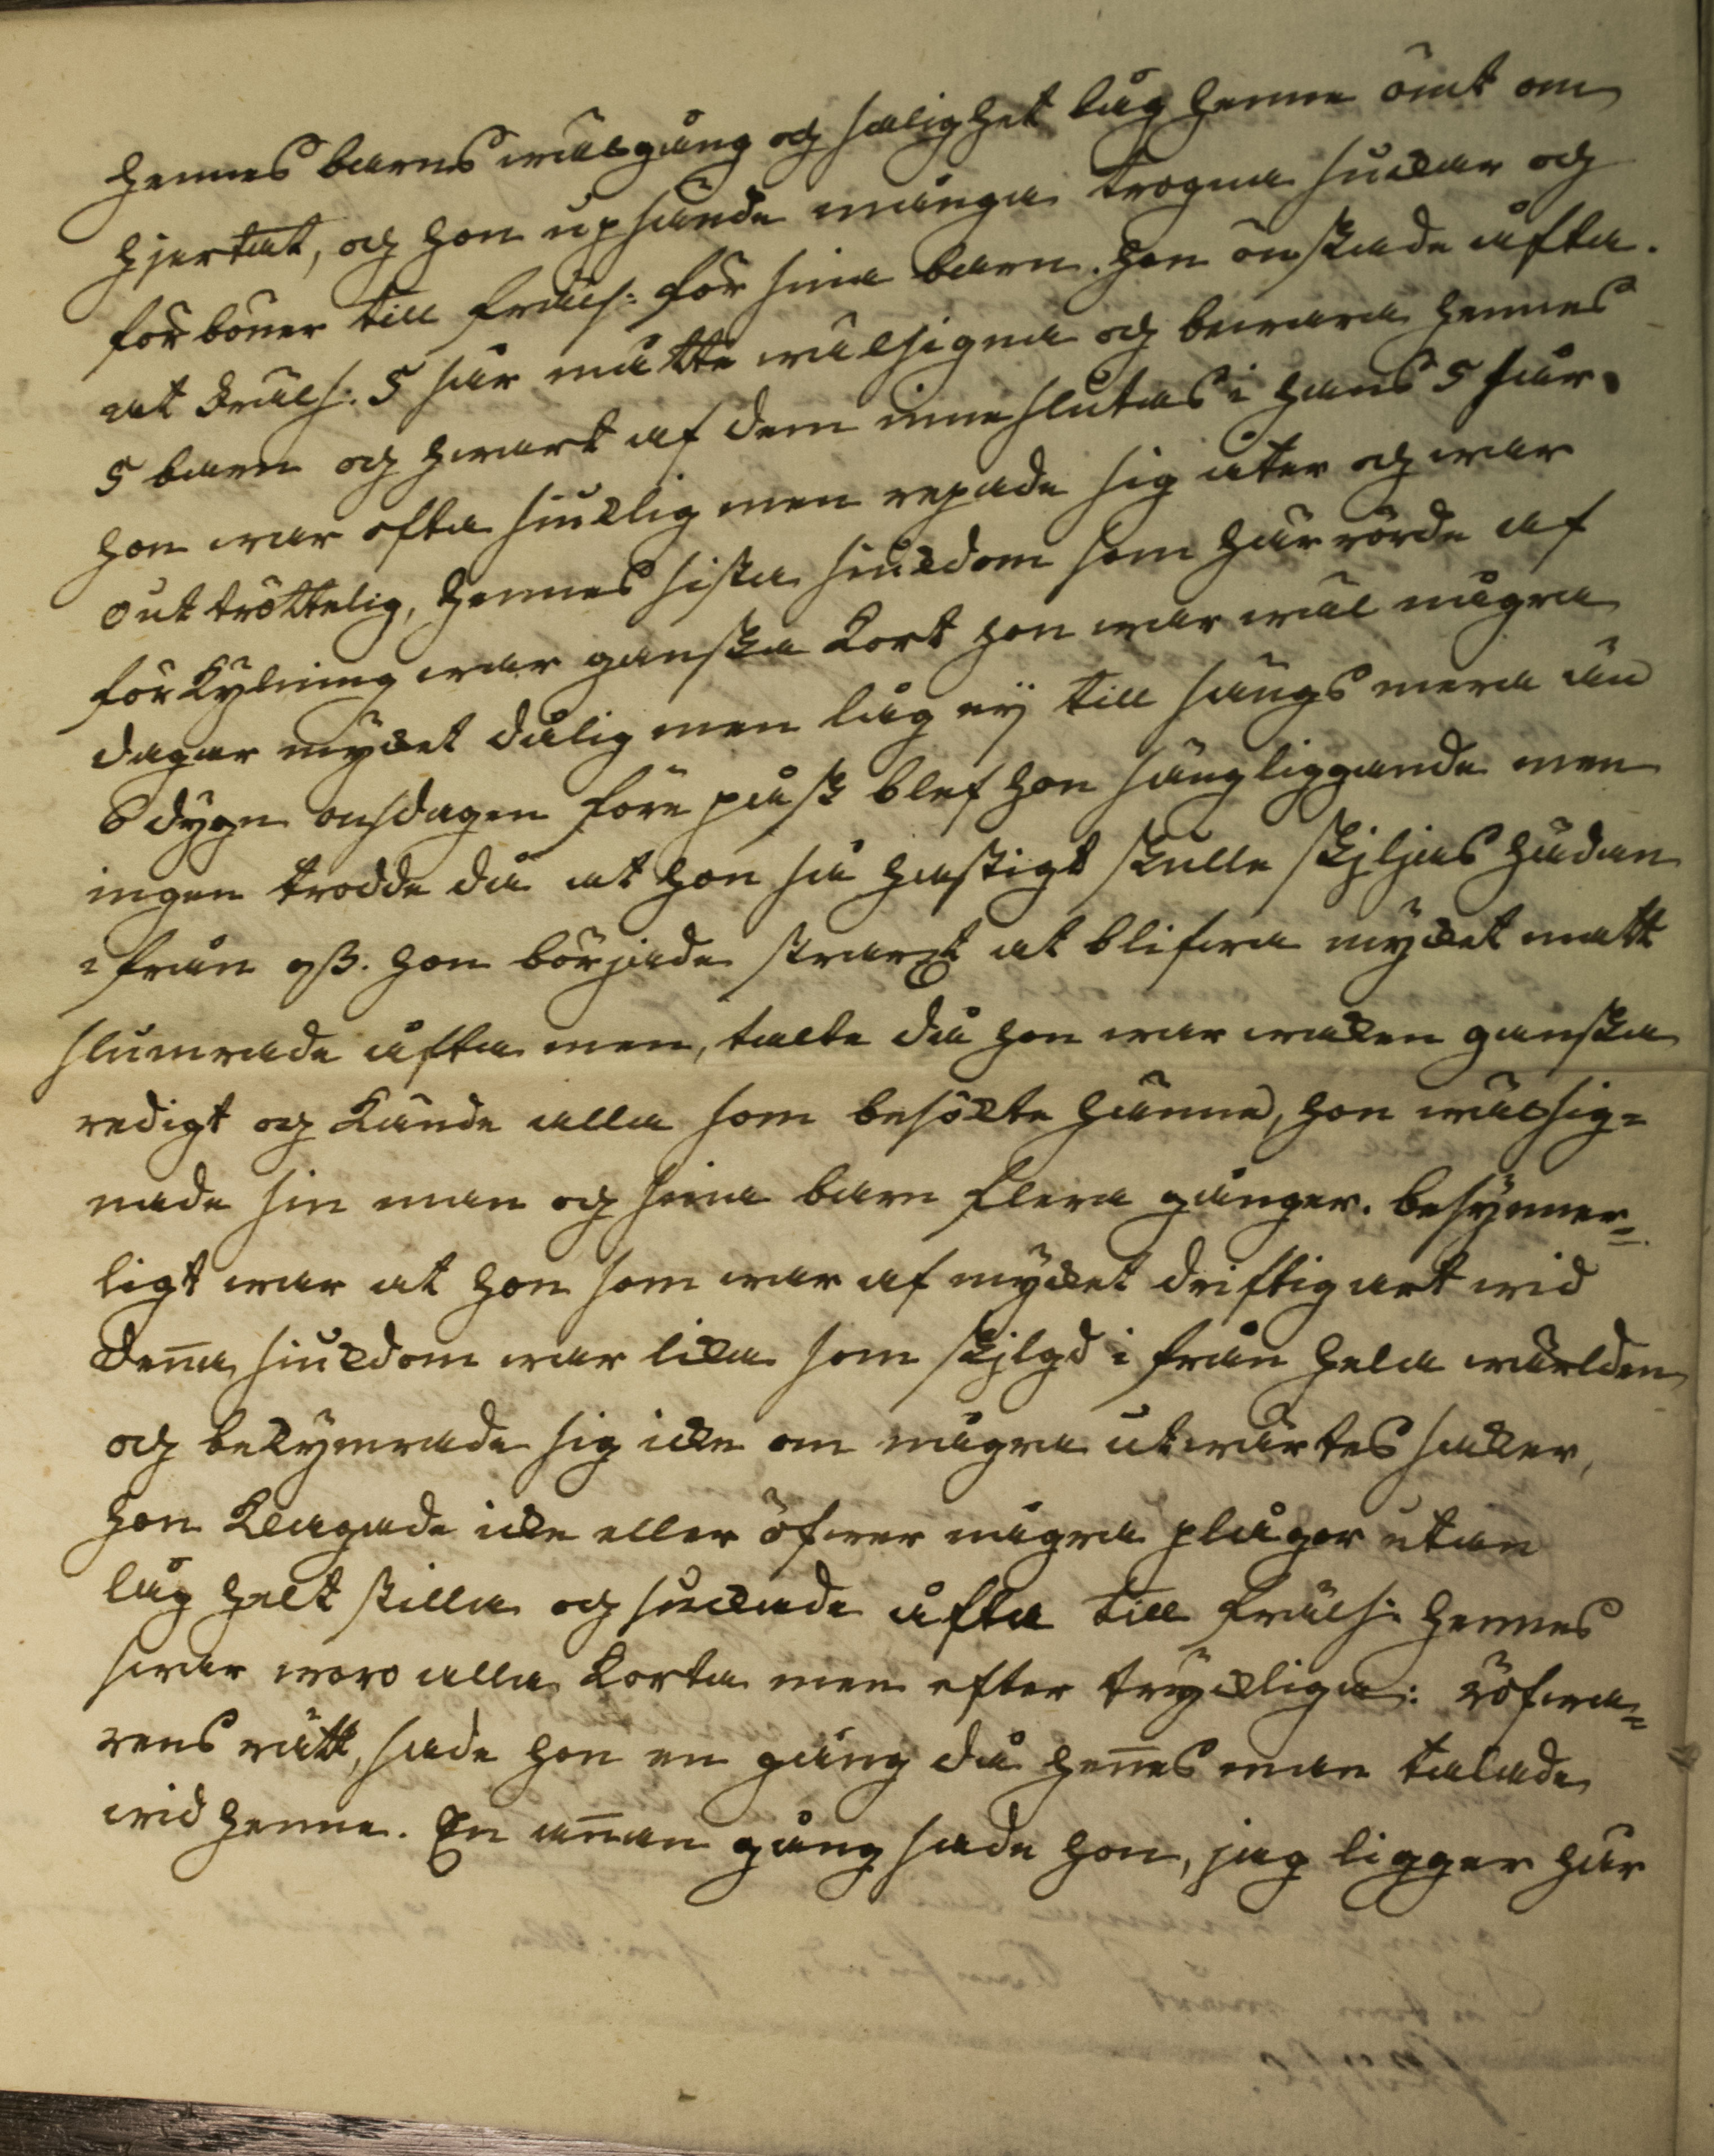 hennes barns wälgång og salighet låg henne ömt om
hjertat, og hon upsände många trogna suckar og
förböner till Fräls: för sina barn. hon önskade åfta.
at Fräls: 5 sår måtte wälsigna og bewara hennes
5 barn og hwart af dem inneslutas i hans 5 sår.
hon war ofta siucklig men repade sig åter og war
outtröttelig, hennes sista siuckdom som härrörde af
förkylning war ganska kort hon war wäl några
dagar mycket dålig men låg eÿ till sängs mera än
6 dygn onsdagen före påsk blef hon sängliggande men
ingen trodde då at hon så hastigt skulle skjljas hädan
ifrån oss. hon började straxt at blifwa mycket matt
slumrade åfta men, talte då hon war waken ganska
redigt og kände alla som besökte hänne, hon wälsig=
nade sin man og sina barn flera gånger. besynner=
ligt war at hon som war af mycket driftig art wid
deña siuckdom war lika som skjlgd i från hela wärlden
og bekymrade sig icke om några utwärtes saker,
hon klagade icke eller öfwer några plågor utan
låg helt stilla og suckade åfta till Fräls: hennes
swar woro alla korta men efter tryckliga: röfwa=
rens rätt, sade hon en gång då heñes man talade
wid henne. En añan gång sade hon, jag ligger här